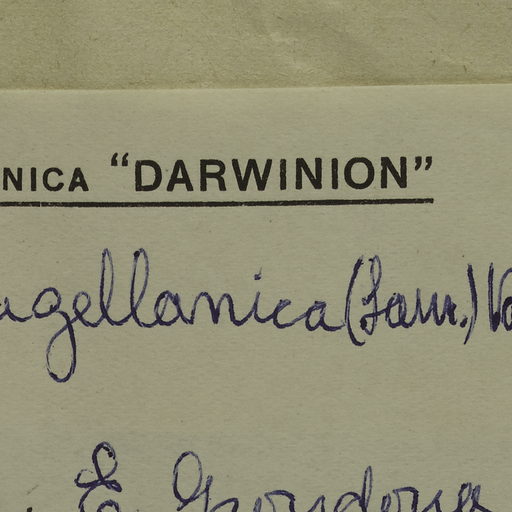 NICA “DARWINION”
agellanica (Lam.) Va
E.